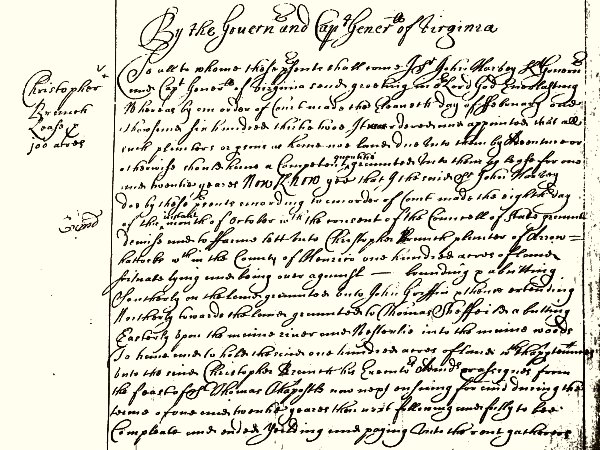 By the Governor and Capt Generll of Virginia
Christopher
Branch
Lease
100 acres
To all to whome these psents shall come I Sr John Harvey Kt Governr
and Capt Generll of Virginia send greeting in or Lord God Everlasting
Whereas by an order of Court made the eleaventh day of ffebruary one
thousand six hundred thirtie two It was ordered and appointed that all
such planters or as none land due unto them by Adventure or
otherwise should have a Competent granted unto them by lease for one
and twentie yeares Now Know yee that I the said Sr John Harvey
doe by these psents according to an order of Court made the eighth day
of this month of October wth the consent of the Councell of State
demise and to ffarme lett unto Christopher Branch planter of Arrow=
hattocks wthin the County of Henrico one hundred acres of land
scituate lying and being over against — bounding & abutting
Southerly on the land graunted unto John Griffin & thence extending
Northerly towards the land graunted to Thomas Sheffeild & abutting
Easterly upon the maine river and Westerlie into the maine woods
To have and to hold the said one hundred acres of land
unto the said Christopher Branch his Executrs or assignes from
the feast of St Thomas the Apostle now next ensuing for and during the
terme of one and twentie yeares then next following and fully to bee
Compleate and ended Yeilding and paying unto the rent gatherers